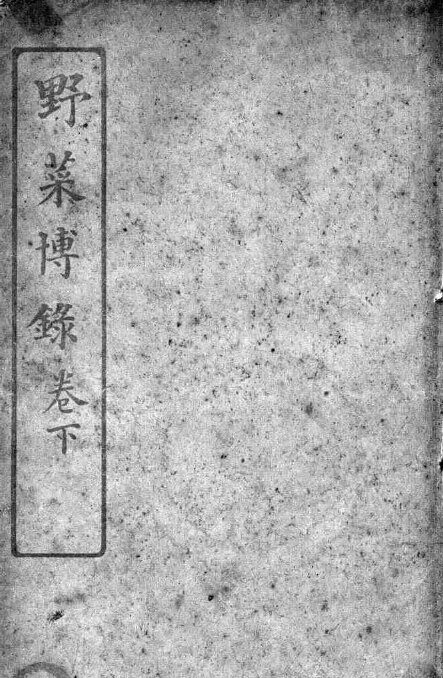 野菜博錄卷下